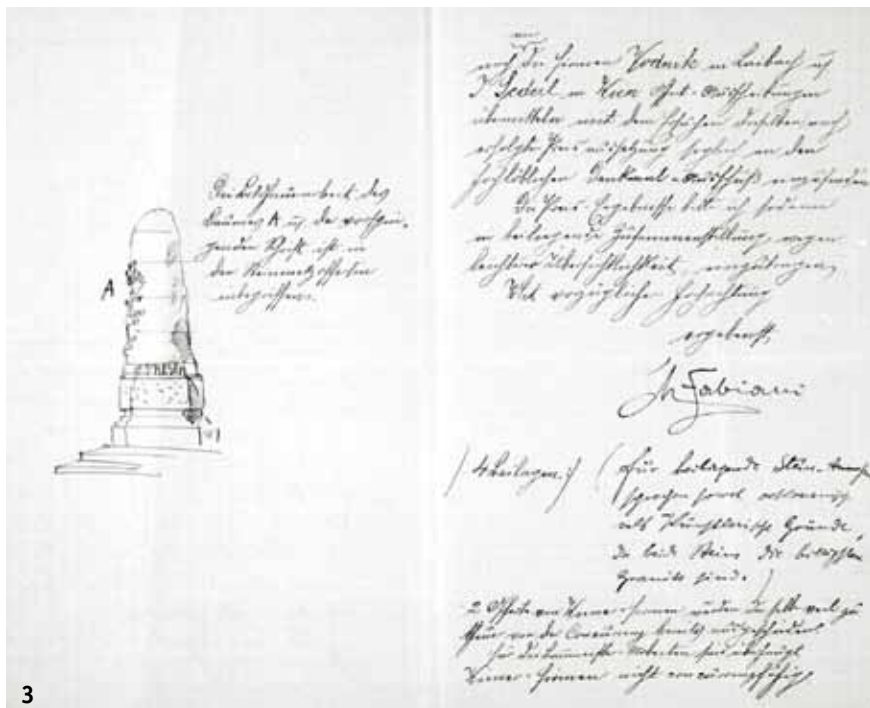 Die Bildhauerarbeit des
Baumes A u. der vorsprin-
genden Schrift ist in
den Steinmetzofferten
inbegriffen.
A
an
die Firmen Vodnik in Laibach u.
Sederl in Wien Offert-Ausschreibungen
übermitteln mit dem Ersuchen dieselben nach
erfolgter sogleich an den
hochlöblichen Denkmal-Ausschuß einzusenden
Die Preis-Ergebnisse bitte ich sodann
in beiliegende Zusammenstellung, wegen
leichterer Übersichtlichkeit, einzutragen,
Mit vorzüglicher Hochachtung
ergebenst,
M Fabiani
/ 4 Beilagen:/
(Für beiliegende Stein-
sprechen sowol
als künstlerische Gründe,
da beide Steine die billigsten
Granite sind.)
2 Offerte von Wiener-Firmen wurden da selbe viel zu
theuer von der Concurrenz bereits ausgeschieden.
Für die Arbeiten sind überhaupt
Wiener-Firmen nicht concurrenzfähig
3